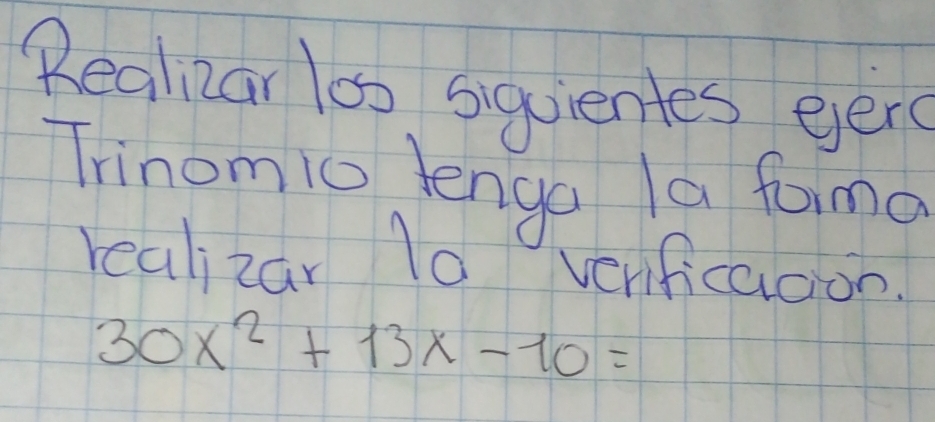 Realizar los siguientes ejerc
Trinomio tenga la forma
realizar la verificación.
30x² + 13x - 10 =